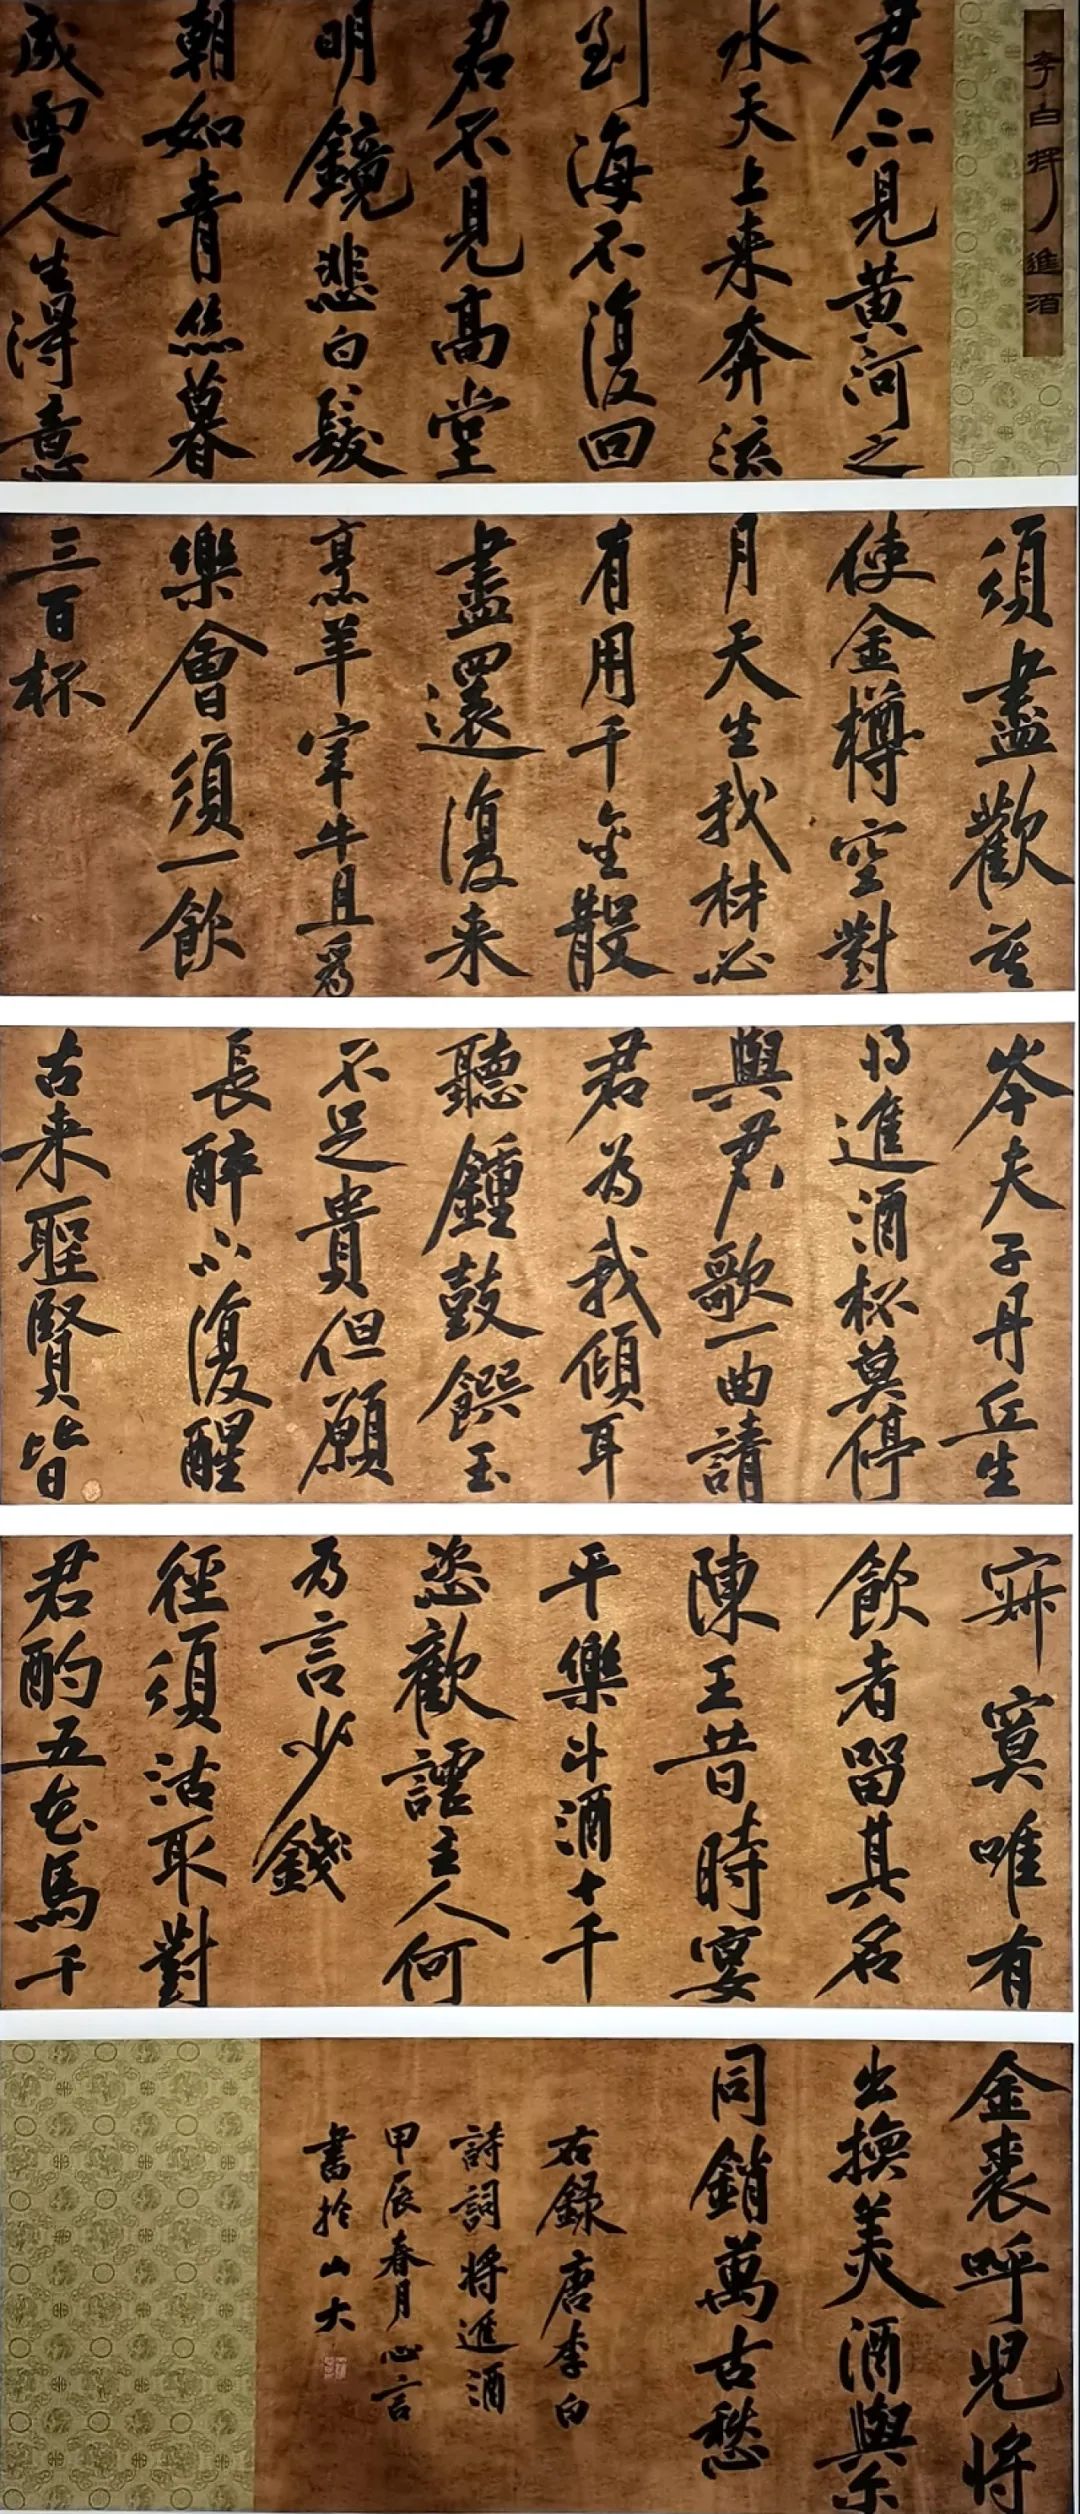 李白将進酒
君不見黃河之
水天上来奔流
到海不復回
君不見高堂
明鏡悲白髮
朝如青絲暮
成雪人生得意
須盡歡莫
使金樽空對
月天生我材必
有用千金散
盡還復来
烹羊宰牛且為
樂會須一飲
三百杯
岑夫子丹丘生
将進酒杯莫停
與君歌一曲請
君為我傾耳
聽鍾鼓饌玉
不足貴但願
長醉不復醒
古来聖賢皆
寂寞唯有
飲者留其名
陳王昔時宴
平樂斗酒十千
恣歡謔主人何
為言少錢
徑須沽取對
君酌五花馬千
金裘呼兒将
出換美酒與尔
同銷萬古愁
右録唐李白
詩詞将進酒
甲辰春月心言
書於山大